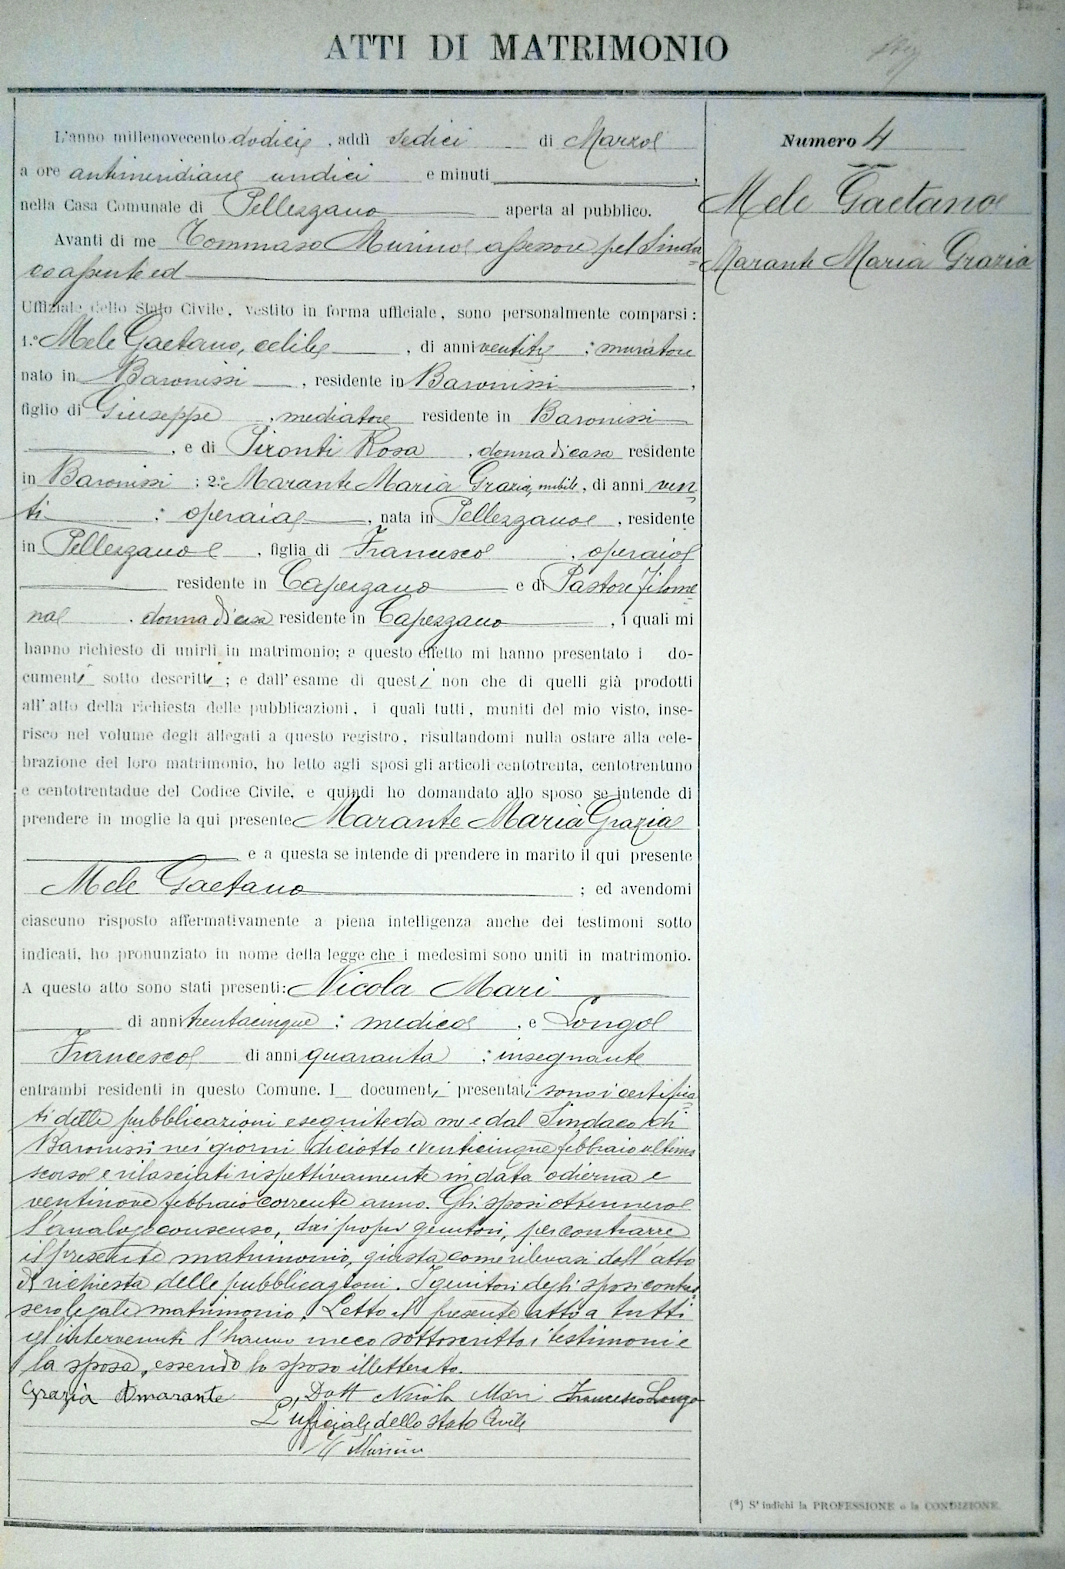 ATTI DI MATRIMONIO
L'anno millenovecento dodici, addì sedici di Marzo
a ore antimeridiane undici e minuti
nella Casa Comunale di Pellezzano aperta al pubblico.
Avanti di me Tommaso Murino assessore pel Sinda=
co assente ed
Uffiziale dello Stato Civile, vestito in forma ufficiale, sono personalmente comparsi:
1.° Mele Gaetano, celibe, di anni ventitre; muratore
nato in Baronissi, residente in Baronissi,
figlio di Giuseppe, mediatore residente in Baronissi
, e di Tironti Rosa, donna di casa residente
in Baronissi; 2.° Marante Maria Grazia, nubile, di anni ven=
ti; operaia, nata in Pellezzano, residente
in Pellezzano, figlia di Francesco, operaio
residente in Capezzano e di Pastore Filome=
na, donna di casa residente in Capezzano, i quali mi
hanno richiesto di unirli in matrimonio; a questo effetto mi hanno presentato i do-
cumenti sotto descritti; e dall'esame di questi non che di quelli già prodotti
all'atto della richiesta delle pubblicazioni, i quali tutti, muniti del mio visto, inse-
risco nel volume degli allegati a questo registro, risultandomi nulla ostare alla cele-
brazione del loro matrimonio, ho letto agli sposi gli articoli centotrenta, centotrentuno
e centotrentadue del Codice Civile, e quindi ho domandato allo sposo se intende di
prendere in moglie la qui presente Marante Maria Grazia
e a questa se intende di prendere in marito il qui presente
Mele Gaetano; ed avendomi
ciascuno risposto affermativamente a piena intelligenza anche dei testimoni sotto
indicati, ho pronunziato in nome della legge che i medesimi sono uniti in matrimonio.
A questo atto sono stati presenti: Nicola Mari
di anni trentacinque; medico, e Longo
Francesco di anni quaranta; insegnante
entrambi residenti in questo Comune. I documenti presentati sono i certifica=
ti delle pubblicazioni eseguite da me e dal Sindaco di
Baronissi nei giorni diciotto e venticinque febbraio ultimo
scorso e rilasciati rispettivamente in data odierna e
ventinove febbraio corrente anno. Gli sposi ottennero
l'analogo consenso, dai propri genitori, per contrarre
il presente matrimonio, giusta come rilevasi dall'atto
di richiesta delle pubblicazioni. I genitori degli sposi contras=
sero legale matrimonio. Letto il presente atto a tutti
gl'intervenuti l'hanno meco sottoscritto i testimoni e
la sposa, essendo lo sposo illetterato.
Grazia Amarante Dott Nicola Mari Francesco Longo
L'ufficiale dello stato Civile
Murino
Numero 4
Mele Gaetano
Marante Maria Grazia
(*) S'indichi la PROFESSIONE o la CONDIZIONE.